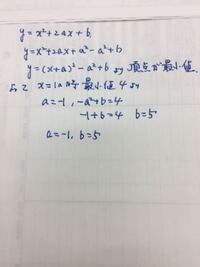 y=x²+2ax+b
y=x²+2ax+a²-a²+b
y=(x+a)²-a²+b より 頂点が最小値.
よって x=1の時 最小値 4 より
a=-1, -a²+b=4
-1+b=4 b=5
a=-1, b=5